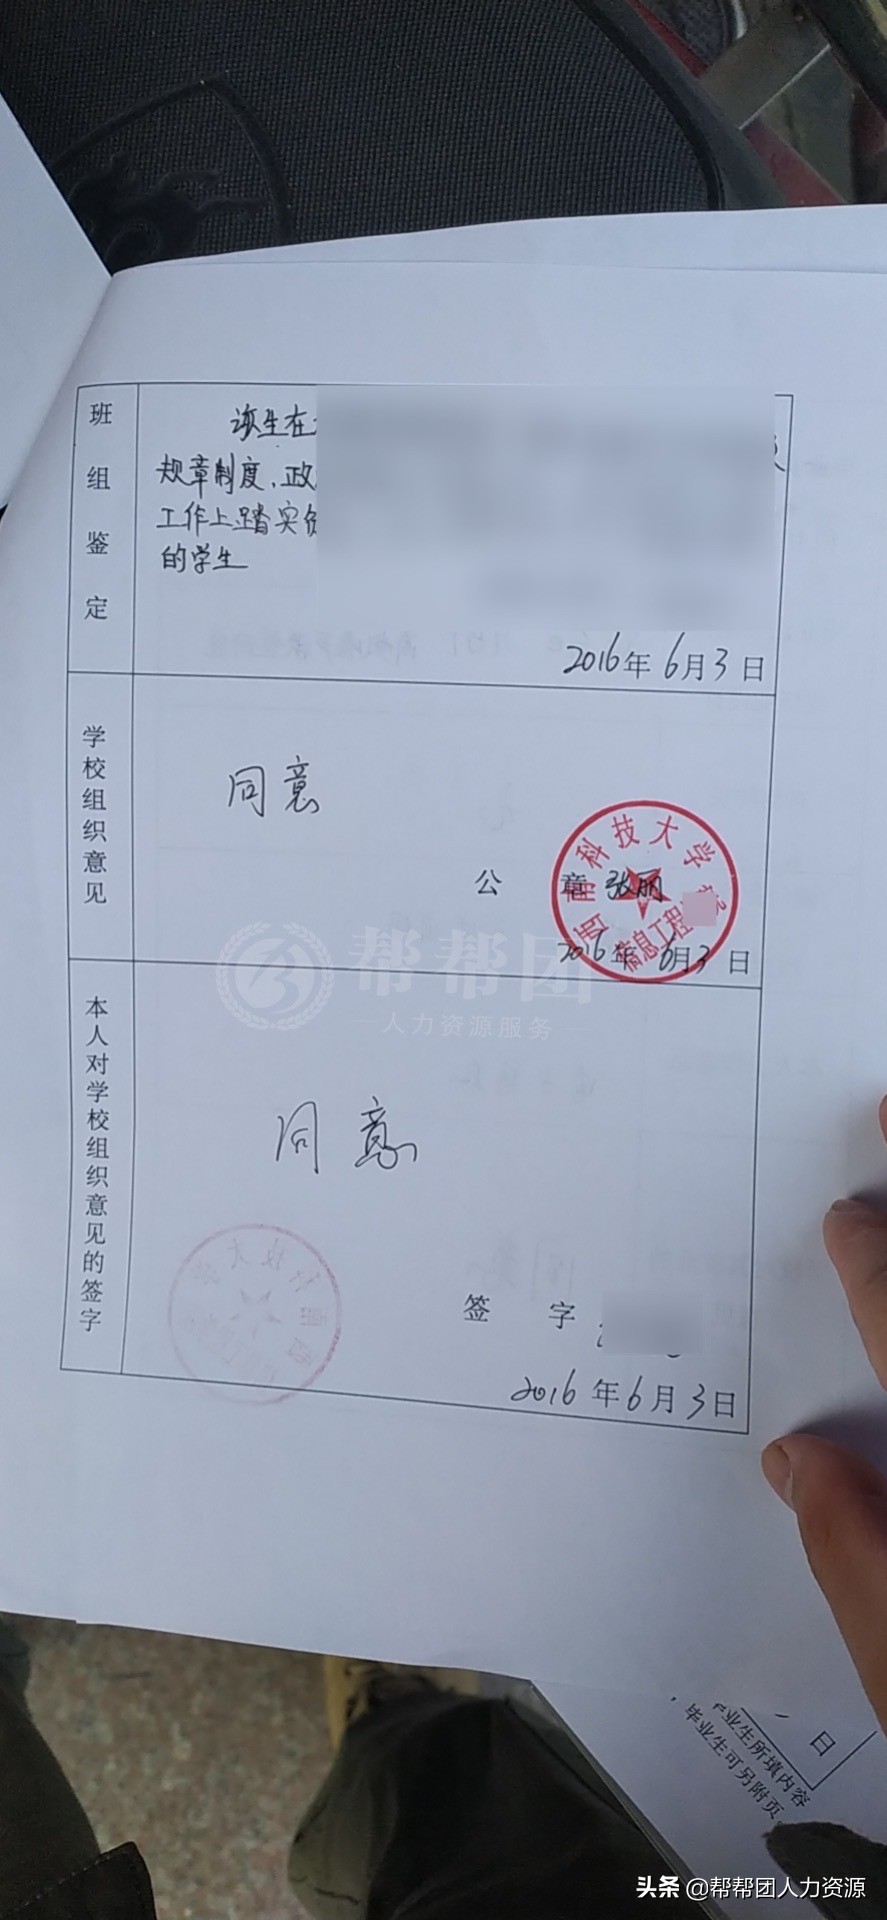 班组鉴定
该生在
规章制度，政
工作上踏实负
的学生
2016年6月3日
学校组织意见
同意
公 章 张丽
西南科技大学
信息工程
2016年6月3日
帮帮团
人力资源服务
本人对学校组织意见的签字
同意
签 字
2016年6月3日
日
毕业生所填内容
毕业生可另附页。
头条 @帮帮团人力资源